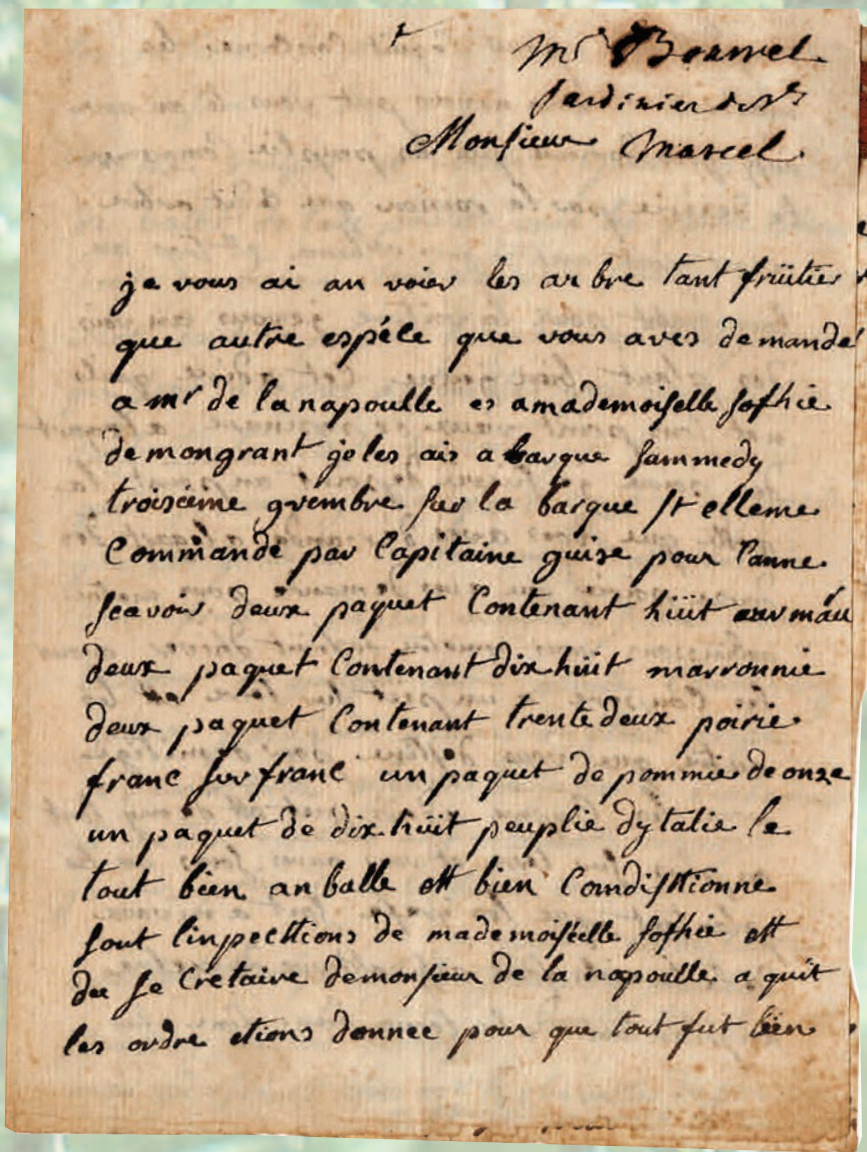 Mr Bourrel
Jardinier
Monsieur Marcel
je vous ai an voier les ar bre tant früitier
que autre espéce que vous aves demandé
a mr de la napoulle es a mademoiselle sofhie
de mongrant je les ais a barque sammedy
troisième 9vembre sur la barque st elleme
Commandé par Capitaine guise pour Canne
scavoir deux paquet Contenant hüit
deux paquet Contenant dix hüit marronnie
deux paquet Contenant trente deux poirie
franc sur franc un paquet de pommie de onze
un paquet de dix hüit peuplie dytalie le
tout bien an balle ett bien Comdisttionne
sout linpecttions de mademoiselle sofhie ett
du se Cretaire de monsieur de la napoulle a quit
les ordre etions donnee pour que tout fut bien